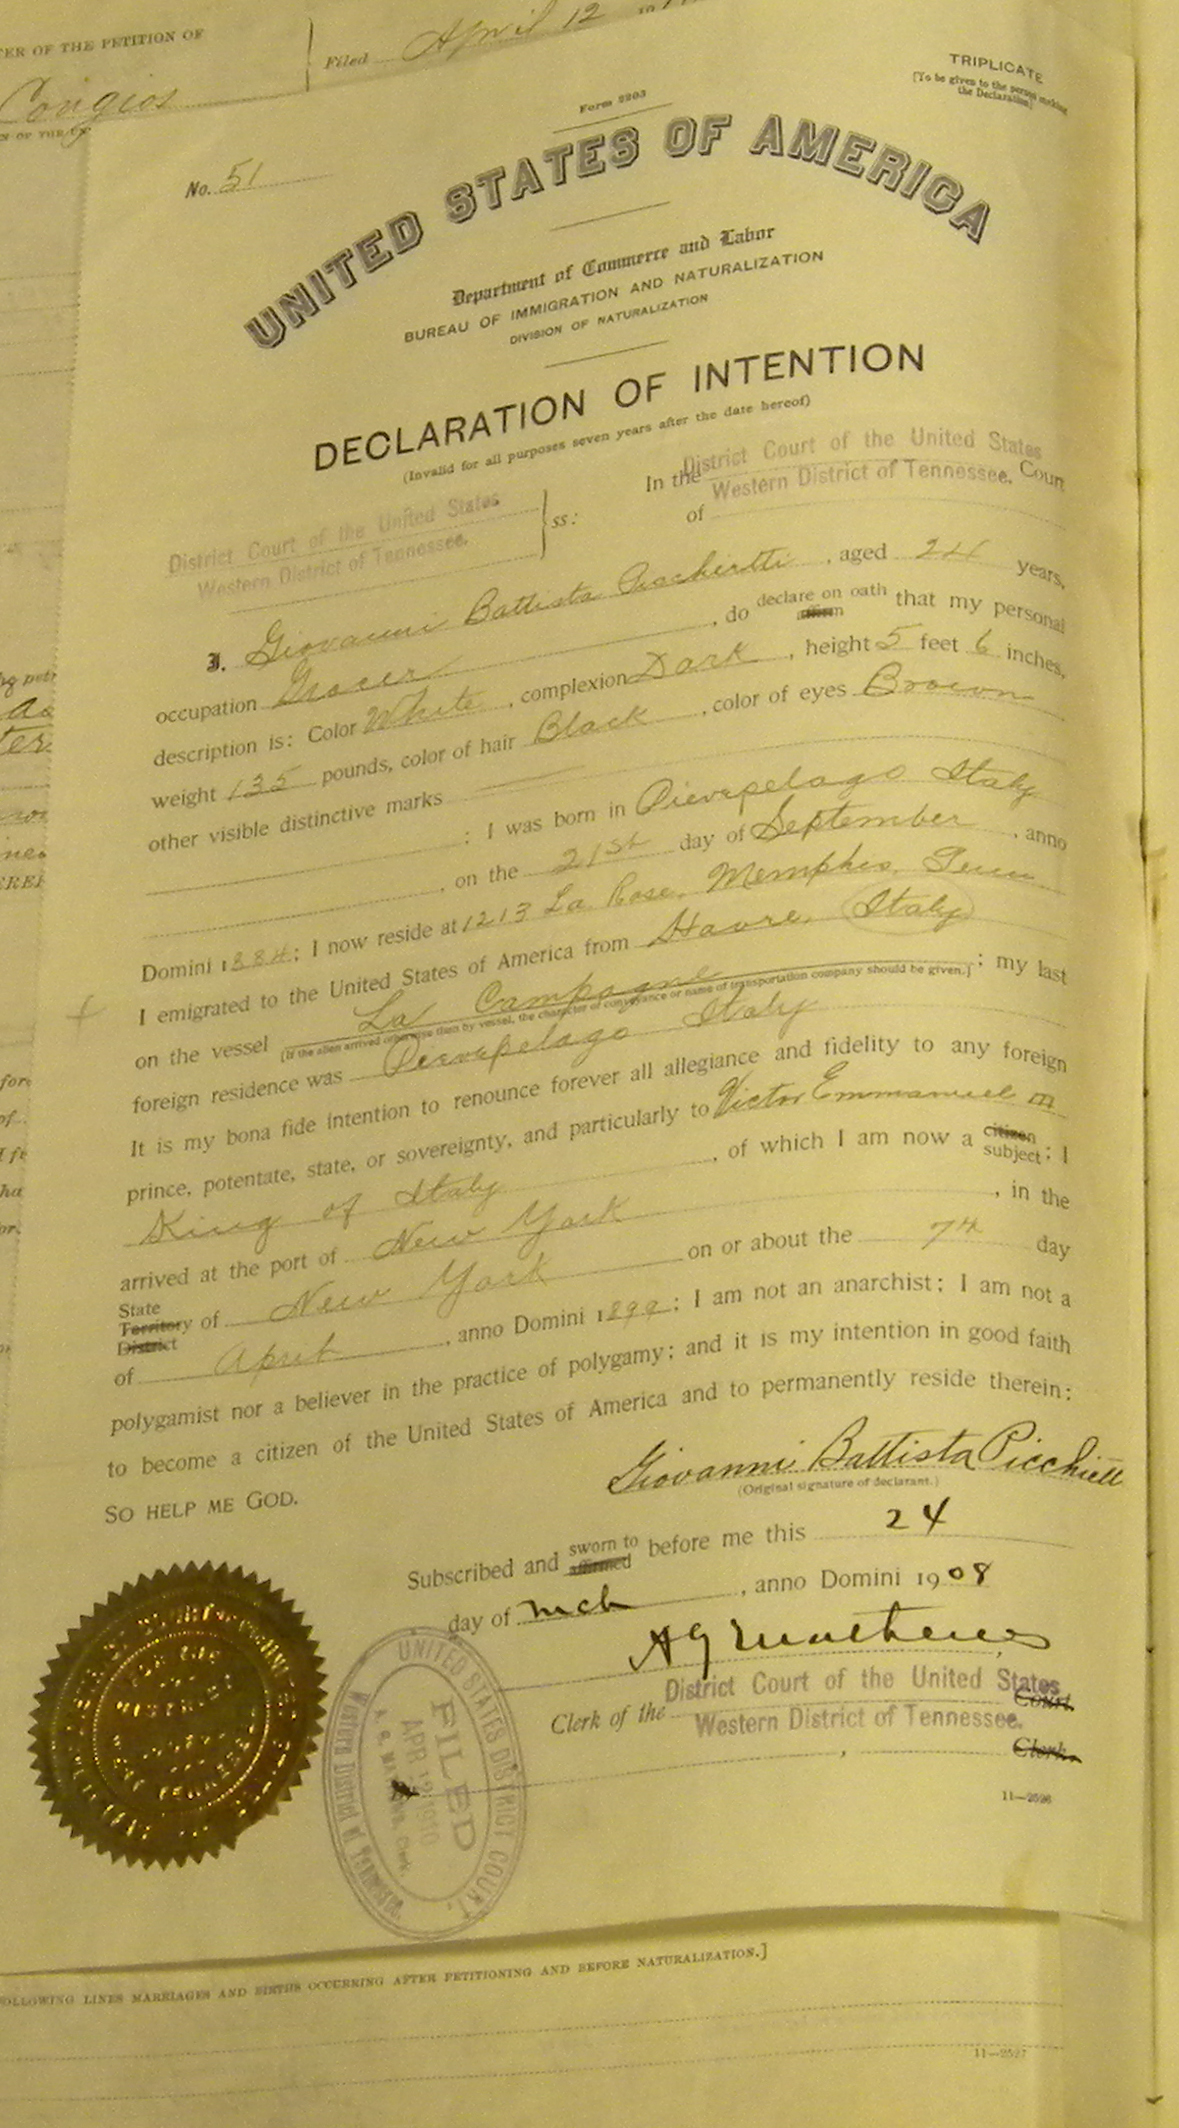 TER OF THE PETITION OF
Filed April 12
Congios
TRIPLICATE
[To be given to the person making
the Declaration]
Form 2203
No. 51
UNITED STATES OF AMERICA
Department of Commerce and Labor
BUREAU OF IMMIGRATION AND NATURALIZATION
DIVISION OF NATURALIZATION
DECLARATION OF INTENTION
(Invalid for all purposes seven years after the date hereof)
District Court of the United States
Western District of Tennessee.
ss:
In the District Court of the United States Court
of Western District of Tennessee.
I, Giovanni Battista Picchietti, aged 24 years,
occupation Grocer, do declare on oath affirm that my personal
description is: Color White, complexion Dark, height 5 feet 6 inches,
weight 135 pounds, color of hair Black, color of eyes Brown
other visible distinctive marks
: I was born in Pievepelago Italy
, on the 21st day of September, anno
Domini 1884; I now reside at 1213 La Rose, Memphis, Tenn
I emigrated to the United States of America from Havre, Italy
on the vessel La Campagne ; my last
(If the alien arrived otherwise than by vessel, the character of conveyance or name of transportation company should be given.)
foreign residence was Pievepelago Italy
It is my bona fide intention to renounce forever all allegiance and fidelity to any foreign
prince, potentate, state, or sovereignty, and particularly to Victor Emmanuel III
King of Italy, of which I am now a citizen subject; I
arrived at the port of New York, in the
State Territory District of New York on or about the 7th day
of April, anno Domini 1899; I am not an anarchist; I am not a
polygamist nor a believer in the practice of polygamy; and it is my intention in good faith
to become a citizen of the United States of America and to permanently reside therein:
SO HELP ME GOD.
Giovanni Battista Picchietti
(Original signature of declarant.)
Subscribed and sworn to affirmed before me this 24
day of Mch, anno Domini 1908
A G Matthews
Clerk of the District Court of the United States Court.
Western District of Tennessee.
Clerk.
UNITED STATES DISTRICT COURT.
FILED
APR 12 1910
Western District of Tennessee
11—2526
FOLLOWING LINES MARRIAGES AND BIRTHS OCCURRING AFTER PETITIONING AND BEFORE NATURALIZATION.]
11—2527